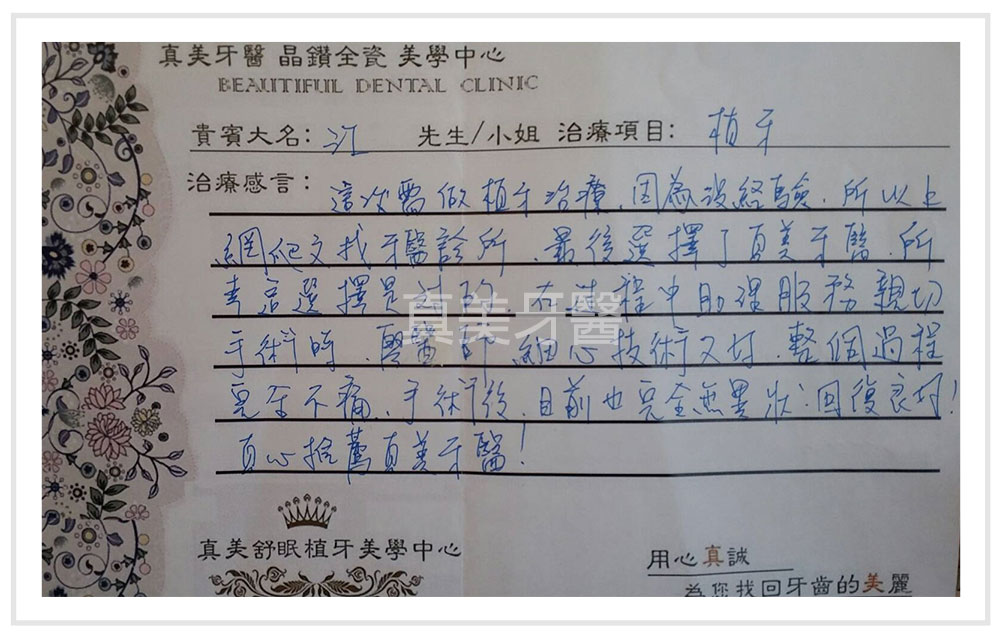 真美牙醫 晶鑽全瓷 美學中心
BEAUTIFUL DENTAL CLINIC
貴賓大名: 江 先生/小姐 治療項目: 植牙
治療感言: 這次需做植牙治療,因為沒經驗,所以上
網爬文找牙醫診所,最後選擇了真美牙醫,所
幸這選擇是對的,在過程中助理服務親切
手術時,醫師細心技術又好,整個過程
完全不痛,手術後,目前也完全無異狀;回復良好!
真心推薦真美牙醫!
真美牙醫
真美舒眠植牙美學中心
用心真誠
為您找回牙齒的美麗